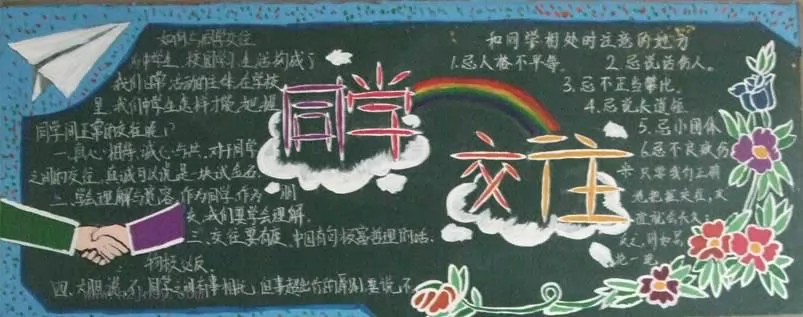 如何与同学交往
为中学生，校园学习生活构成了
我们日常活动的主体在学校
里 我们中学生怎样才能把握
同学间正常的交往呢？
一、真心相待，诚心与共，对于同学
之间的交往，真诚可以说是一块试金石
二、学会理解与宽容，作为同学，作为朋
友，我们要学会理解，
三、交往要有度，中国有句极富哲理的话：
物极必反。
四、大胆说不，同学之间有事相托，但事超出你的原则，要说不
同学
交往
和同学相处时注意的地方
1.忌人格不平等。
2.忌说话伤人。
3.忌不正当攀比。
4.忌说长道短
5.忌小团体
6.忌不良嗜好
只要我们正确
地把握交往，友
谊就会长久；
反之，则如昙
花一现